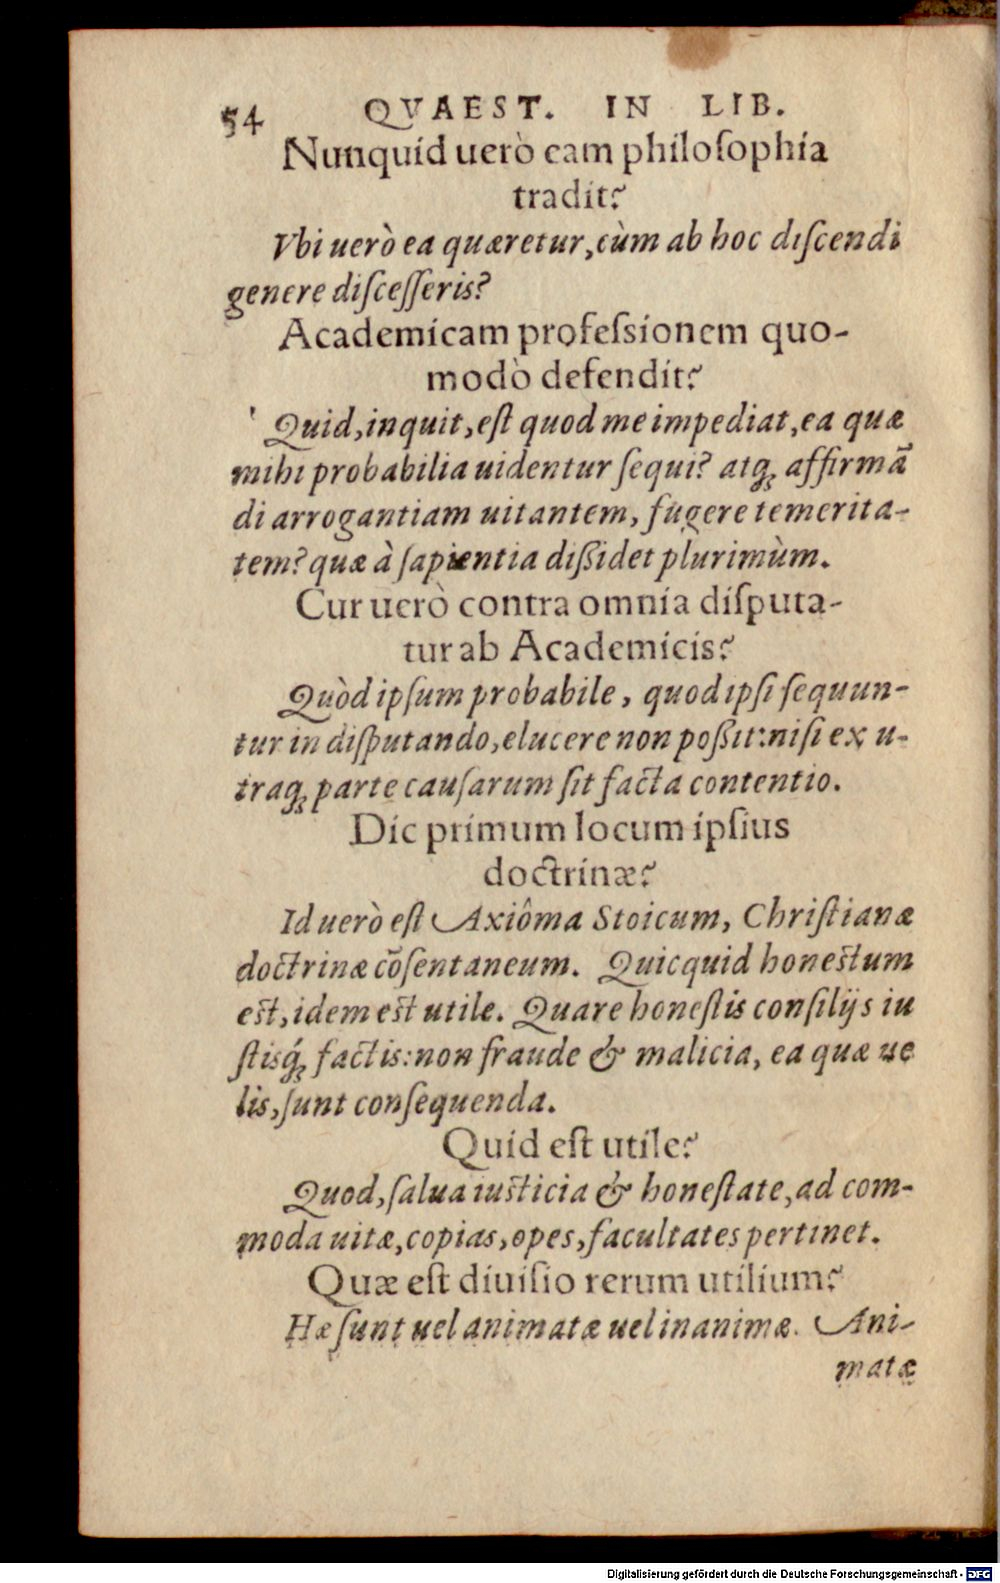 54 QVAEST. IN LIB.
Nunquid uerò eam philoſophia
tradit?
Vbi uerò ea quæretur, cùm ab hoc diſcendi
genere diſceſſeris?
Academicam profeſsionem quo-
modò defendit?
Quid, inquit, eſt quod me impediat, ea quæ
mihi probabilia uidentur ſequi? atqꝫ affirmã
di arrogantiam uitantem, fugere temerita-
tem? quæ à ſapientia dißidet plurimùm.
Cur uerò contra omnia diſputa-
tur ab Academicis?
Quòd ipſum probabile, quod ipſi ſequun-
tur in diſputando, elucere non poßit: niſi ex u-
traqꝫ parte cauſarum ſit facta contentio.
Dic primum locum ipſius
doctrinæ?
Id uerò eſt Axiôma Stoicum, Chriſtianæ
doctrinæ cõſentaneum. Quicquid honestum
est, idem est utile. Quare honeſtis conſilijs iu
ſtisqꝫ́ factis: non fraude & malicia, ea quæ ue
lis, ſunt conſequenda.
Quid eſt utile?
Quod, ſalua iusticia & honeſtate, ad com-
moda uitæ, copias, opes, facultates pertinet.
Quæ eſt diuiſio rerum utilium?
Hæ ſunt uel animatæ uel inanimæ. Ani-
matæ
Digitalisierung gefördert durch die Deutsche Forschungsgemeinschaft - DFG